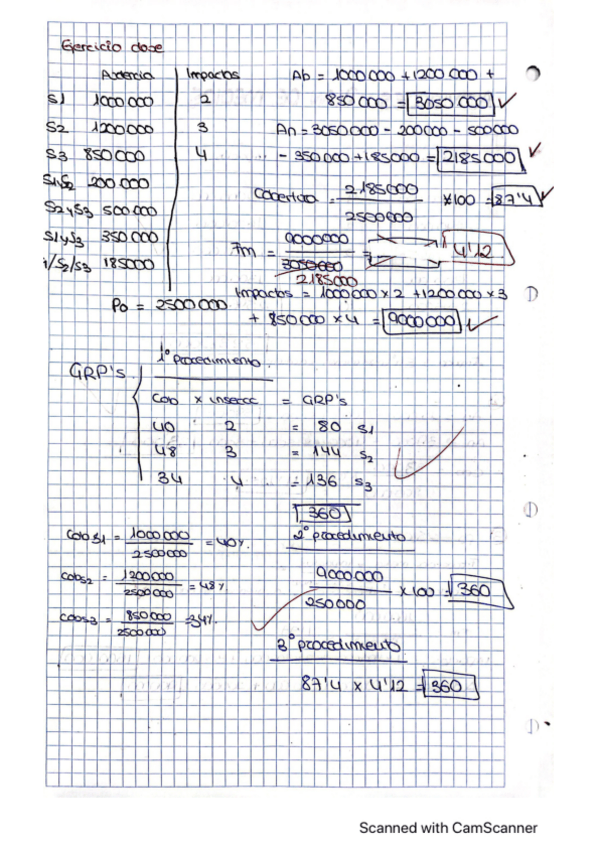 Ejercicio clase
Audencia Impactos
S1 1000000 2
S2 1200000 3
S3 850000 4
S1yS2 200.000
S2yS3 500000
S1yS3 350000
1/S2/S3 185000
Po = 2500000
Ab = 1000000 + 1200000 +
850000 = 3050000
An = 3050000 - 200000 - 500000
- 350000 + 185000 = 2185000
Cobertura = 2185000 / 2500000 x100 = 87'4
Fm = 9000000 / 3050000 = 4'12
2185000
Impactos = 1000000 x 2 + 1200000 x 3
+ 850000 x 4 = 9000000
GRP's
1º procedimiento
Cob x inserc = GRP's
40 2 = 80 S1
48 3 = 144 S2
34 4 = 136 S3
360
Cob S1 = 1000000 / 2500000 = 40%.
Cob S2 = 1200000 / 2500000 = 48%
Cob S3 = 850000 / 2500000 = 34%.
2º procedimiento
9000000 / 250000 x 100 = 360
3º procedimiento
87'4 x 4'12 = 360
Scanned with CamScanner